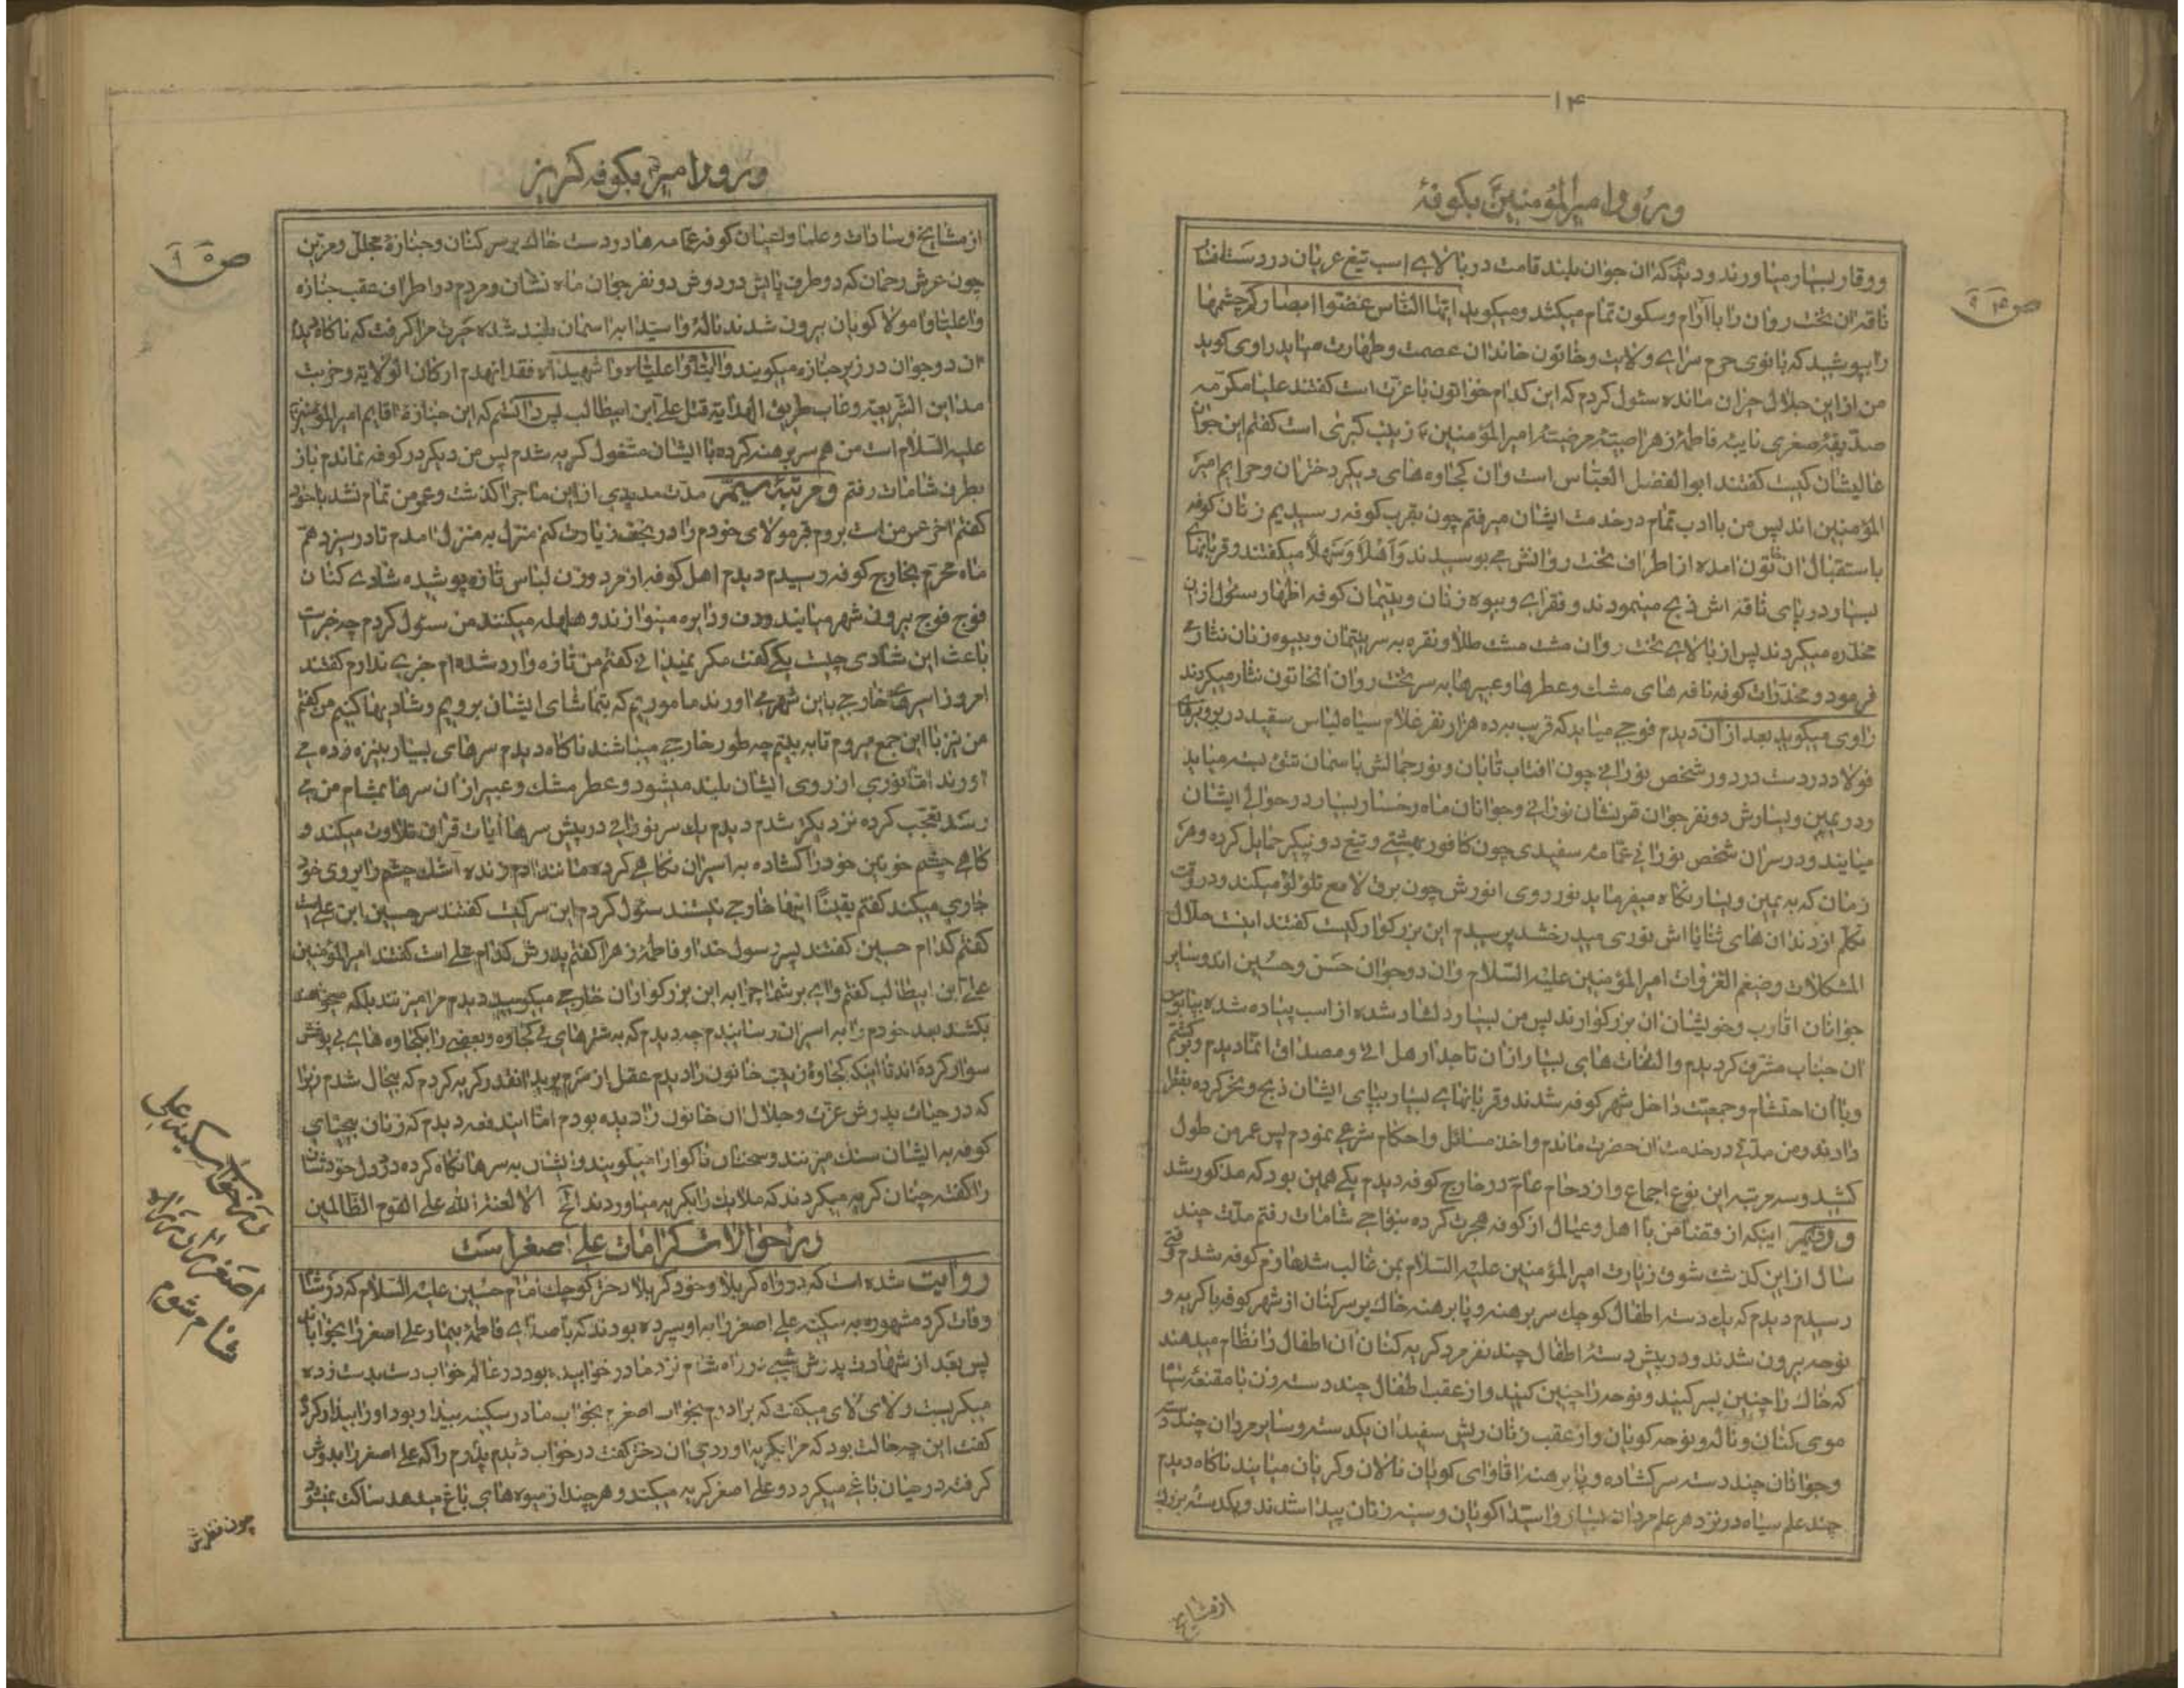 ۱۴
ورود امیرالمؤمنین بکوفهٔ
ص ۹۴
ووقار بسیار میاورند و دیدم که ان جوان بلند قامت در بالای اسب تیغ عریان در دست
ناقه ان تخت روان را باآرام وسکون تمام میکشد ومیکوید ایّها النّاس غضّوا ابصارکم چشمها
را بپوشید که بانوی حرم سرای ولایت وخاتون خاندان عصمت وطهارت میاید راوی کوید
من از این جلال حیران مانده سئول کردم که این کدام خواتون باعزت است کفتند علیا مکرّمه
صدّیقهٔ صغری نایبهٔ فاطمهٔ زهرا امیر المؤمنین زینب کبری است کفتم این جوان
عالیشان کیست کفتند ابو الفضل العبّاس است وان کجاوه های دیکر دختران وحرایم امیر
المؤمنین اند پس من باادب تمام در خدمت ایشان میرفتم چون بقرب کوفه رسیدیم زنان کوفه
باستقبال ان خاتون امده از اطراف تخت روانش می بوسیدند وَاَهْلاً وَسَهْلاً میکفتند وقربانیهای
بسیار در پای ناقه اش ذبح مینمودند وفقرای وبیوه زنان ویتیمان کوفه اظهار سئول از ان
مخدّره میکردند پس از بالای تخت روان مشت مشت طلا ونقره به سر یتیمان وبیوه زنان نثار
فرمود ومخدّرات کوفه نافه های مشک وعطرها وعبیرها به سر تخت روان انخاتون نثار میکردند
راوی میکوید بعد از آن دیدم فوجی میاید که قریب به ده هزار نفر غلام سیاه لباس سفید در بر
فولاد در دست در دور شخص نورانی چون افتاب تابان ونور جمالش باسمان تتق بسته میاید
ودر یمین ویسارش دو نفر جوان قمر نشان نورانی وجوانان ماه رخسار بسیار در حوالی ایشان
میایند ودر سر ان شخص نورانی عمّامهٔ سفیدی چون کافور بهشتی وتیغ دو پیکر حمایل کرده وهر
زمان که به یمین ویسار نکاه میفرماید نور روی انورش چون برق لامع تلؤلؤ میکند ودر وقت
تکلّم از دندان های ثنایا اش نوری میدرخشد پرسیدم این بزرکوار کیست کفتند اینست حلّال
المشکلات وضیغم الغزوات امیر المؤمنین علیه السّلام وان دو جوان حَسَن وحُسین اند وسایر
جوانان اقارب وخویشان ان بزرکوارند پس من بسیار دلشاد شده از اسب پیاده شده بپابوس
ان جناب مشرّف کردیدم والتفات های بسیار از ان تاجدار هل اتی ومصداق انّما دیدم
وباآن احتشام وجمعیّت داخل شهر کوفه شدند وقربانیهای بسیار بپای ایشان ذبح ونحر کرده
دادند ومن مدّتی در خدمت ان حضرت ماندم واخذ مسائل واحکام شرعی نمودم پس عمر من طول
کشید وسه مرتبه این نوع اجماع وازدحام عام در خارج کوفه دیدم یکی همین بود که مذکور شد
ودویّم اینکه از قضا من با اهل وعیال از کوفه هجرت کرده بنواحی شامات رفتم مدّت چند
سال از این کذشت شوق زیارت امیر المؤمنین علیه السّلام بمن غالب شد عازم کوفه شدم وقتی
رسیدم دیدم که یک دسته اطفال کوچک سر برهنه وپا برهنه خاک بر سر کنان از شهر کوفه با کریه و
نوحه بیرون شدند ودر پیش دستهٔ اطفال چند نفر مرد کریه کنان ان اطفال را نظام میدهند
که خاک را چنین بسر کنید ونوحه را چنین کنید واز عقب اطفال چند دسته زن با مقنعهٔ سیاه
موی کنان وناله ونوحه کویان واز عقب زنان ریش سفیدان یکدسته وسایر مردان چند دسته
وجوانان چند دسته سر کشاده وپا برهنه اقاوای کویان نالان وکریان میایند ناکاه دیدم
چند علم سیاه در نزد هر علم مردان بسیار واسیّدا کویان وسینه زنان پیدا شدند ویکدستهٔ بزرک
از مشایخ
ورود امیر بکوفه
ص ۹۵
از مشایخ وسادات وعلما واعیان کوفه عمامه ها در دست خاک بر سر کنان وجنازهٔ مجلّل ومزیّن
چون عرش رحمان که دو طرف پایش در دوش دو نفر جوان ماه نشان ومردم در اطراف عقب جنازه
واعلیّا وامولا کویان بیرون شدند نالهٔ واسیّدا به اسمان بلند شده حیرت مرا کرفت که ناکاه دیدم
ان دو جوان در زیر جنازه میکویند وا ابتاه واعلیّاه واشهیداه فقد انهدم ارکان الولایة وخربت
مداین الشریعة وغاب طریق الهدایة قتل علیّ ابن ابیطالب پس دانستم که این جنازهٔ اقایم امیر المؤمنین
علیه السّلام است من هم سر برهنه کرده با ایشان مشغول کریه شدم پس من دیکر در کوفه نماندم باز
بطرف شامات رفتم ومرتبهٔ سیّم مدّت مدیدی از این ماجرا کذشت وعمر من تمام نشد باخود
کفتم اخر عمر من است بروم قبر مولای خودم را در نجف زیارت کنم منزل به منزل امدم تا در سیزدهم
ماه محرّم بخارج کوفه رسیدم دیدم اهل کوفه از مرد وزن لباس تازه پوشیده شادی کنان
فوج فوج بیرون شهر میایند ودف ودایره مینوازند وهلهله میکنند من سئول کردم چه خبر است
باعث این شادی چیست یکی کفت مکر نمیدانی کفتم من تازه وارد شده ام خبری ندارم کفتند
امروز اسیرهای خارجی باین شهر می اورند ما موریم که بتماشای ایشان برویم وشادیها کنیم من کفتم
من نیز باین جمع میروم تا به بینم چه طور خارجی میباشند ناکاه دیدم سرهای بسیار بنیزه زده می
اورند امّا نوری از روی ایشان بلند میشود وعطر مشک وعبیر از ان سرها بمشام من می
رسد تعجّب کرده نزدیکتر شدم دیدم یک سر نورانی در پیش سرها ایات قران تلاوت میکند و
کاهی چشم خونین خود را کشاده به اسیران نکاهی کرده مانند ادم زنده اشک چشم را بروی خود
جاری میکند کفتم یقیناً اینها خارجی نیستند سئول کردم این سر کیست کفتند سر حسین ابن علی است
کفتم کدام حسین کفتند پسر رسول خدا وفاطمهٔ زهرا کفتم پدرش کدام علی است کفتند امیر المؤمنین
علیّ ابن ابیطالب کفتم وای بر شما چرا به این بزرکواران خارجی میکویید دیدم مرا میزنند بلکه میخواهند
بکشند بعد خودم را به اسیران رسانیدم چه دیدم که به شترهای بی کجاوه وبعضی را بکجاوه های بی پوشش
سوار کرده اند تا اینکه کجاوهٔ زینب خاتون را دیدم عقل از سرم پرید انقدر کریه کردم که بیحال شدم زیرا
که در حیات پدرش عزّت وجلال ان خاتون را دیده بودم امّا ایندفعه دیدم که زنان بیحیای
کوفه به ایشان سنک میزنند وسخنان ناکوارا میکویند وایشان به سرها نکاه کرده درد دل خودشان
را کفته چنان کریه میکردند که ملایک را بکریه میاوردند الخ الا لعنة الله علی القوم الظّالمین
در احوالات کرامات علی اصغر است
روایت شده است که در راه کربلا وخود کربلا دختر کوچک امام حسین علیه السّلام که در شام
وفات کرد مشهوره به سکینه علی اصغر را به او سپرده بودند که فاطمهٔ بیمار علی اصغر را بخواباند
پس بعد از شهادت پدرش شبی در راه شام نزد مادر خوابیده بود در عالم خواب دست بدست زده
میکریست ولای لای میکفت که برادرم بخواب اصغرم بخواب مادر سکینه بیدار بود او را بیدار کرد
کفت این چه حالت بود که مرا بکریه اوردی ان دختر کفت در خواب دیدم پدرم را که علی اصغر را بدوش
کرفته در میان باغی میکردد وعلی اصغر کریه میکند وهر چند از میوه های باغ میدهد ساکت نمیشود
اصغر را در راه
شام
چون نظرش